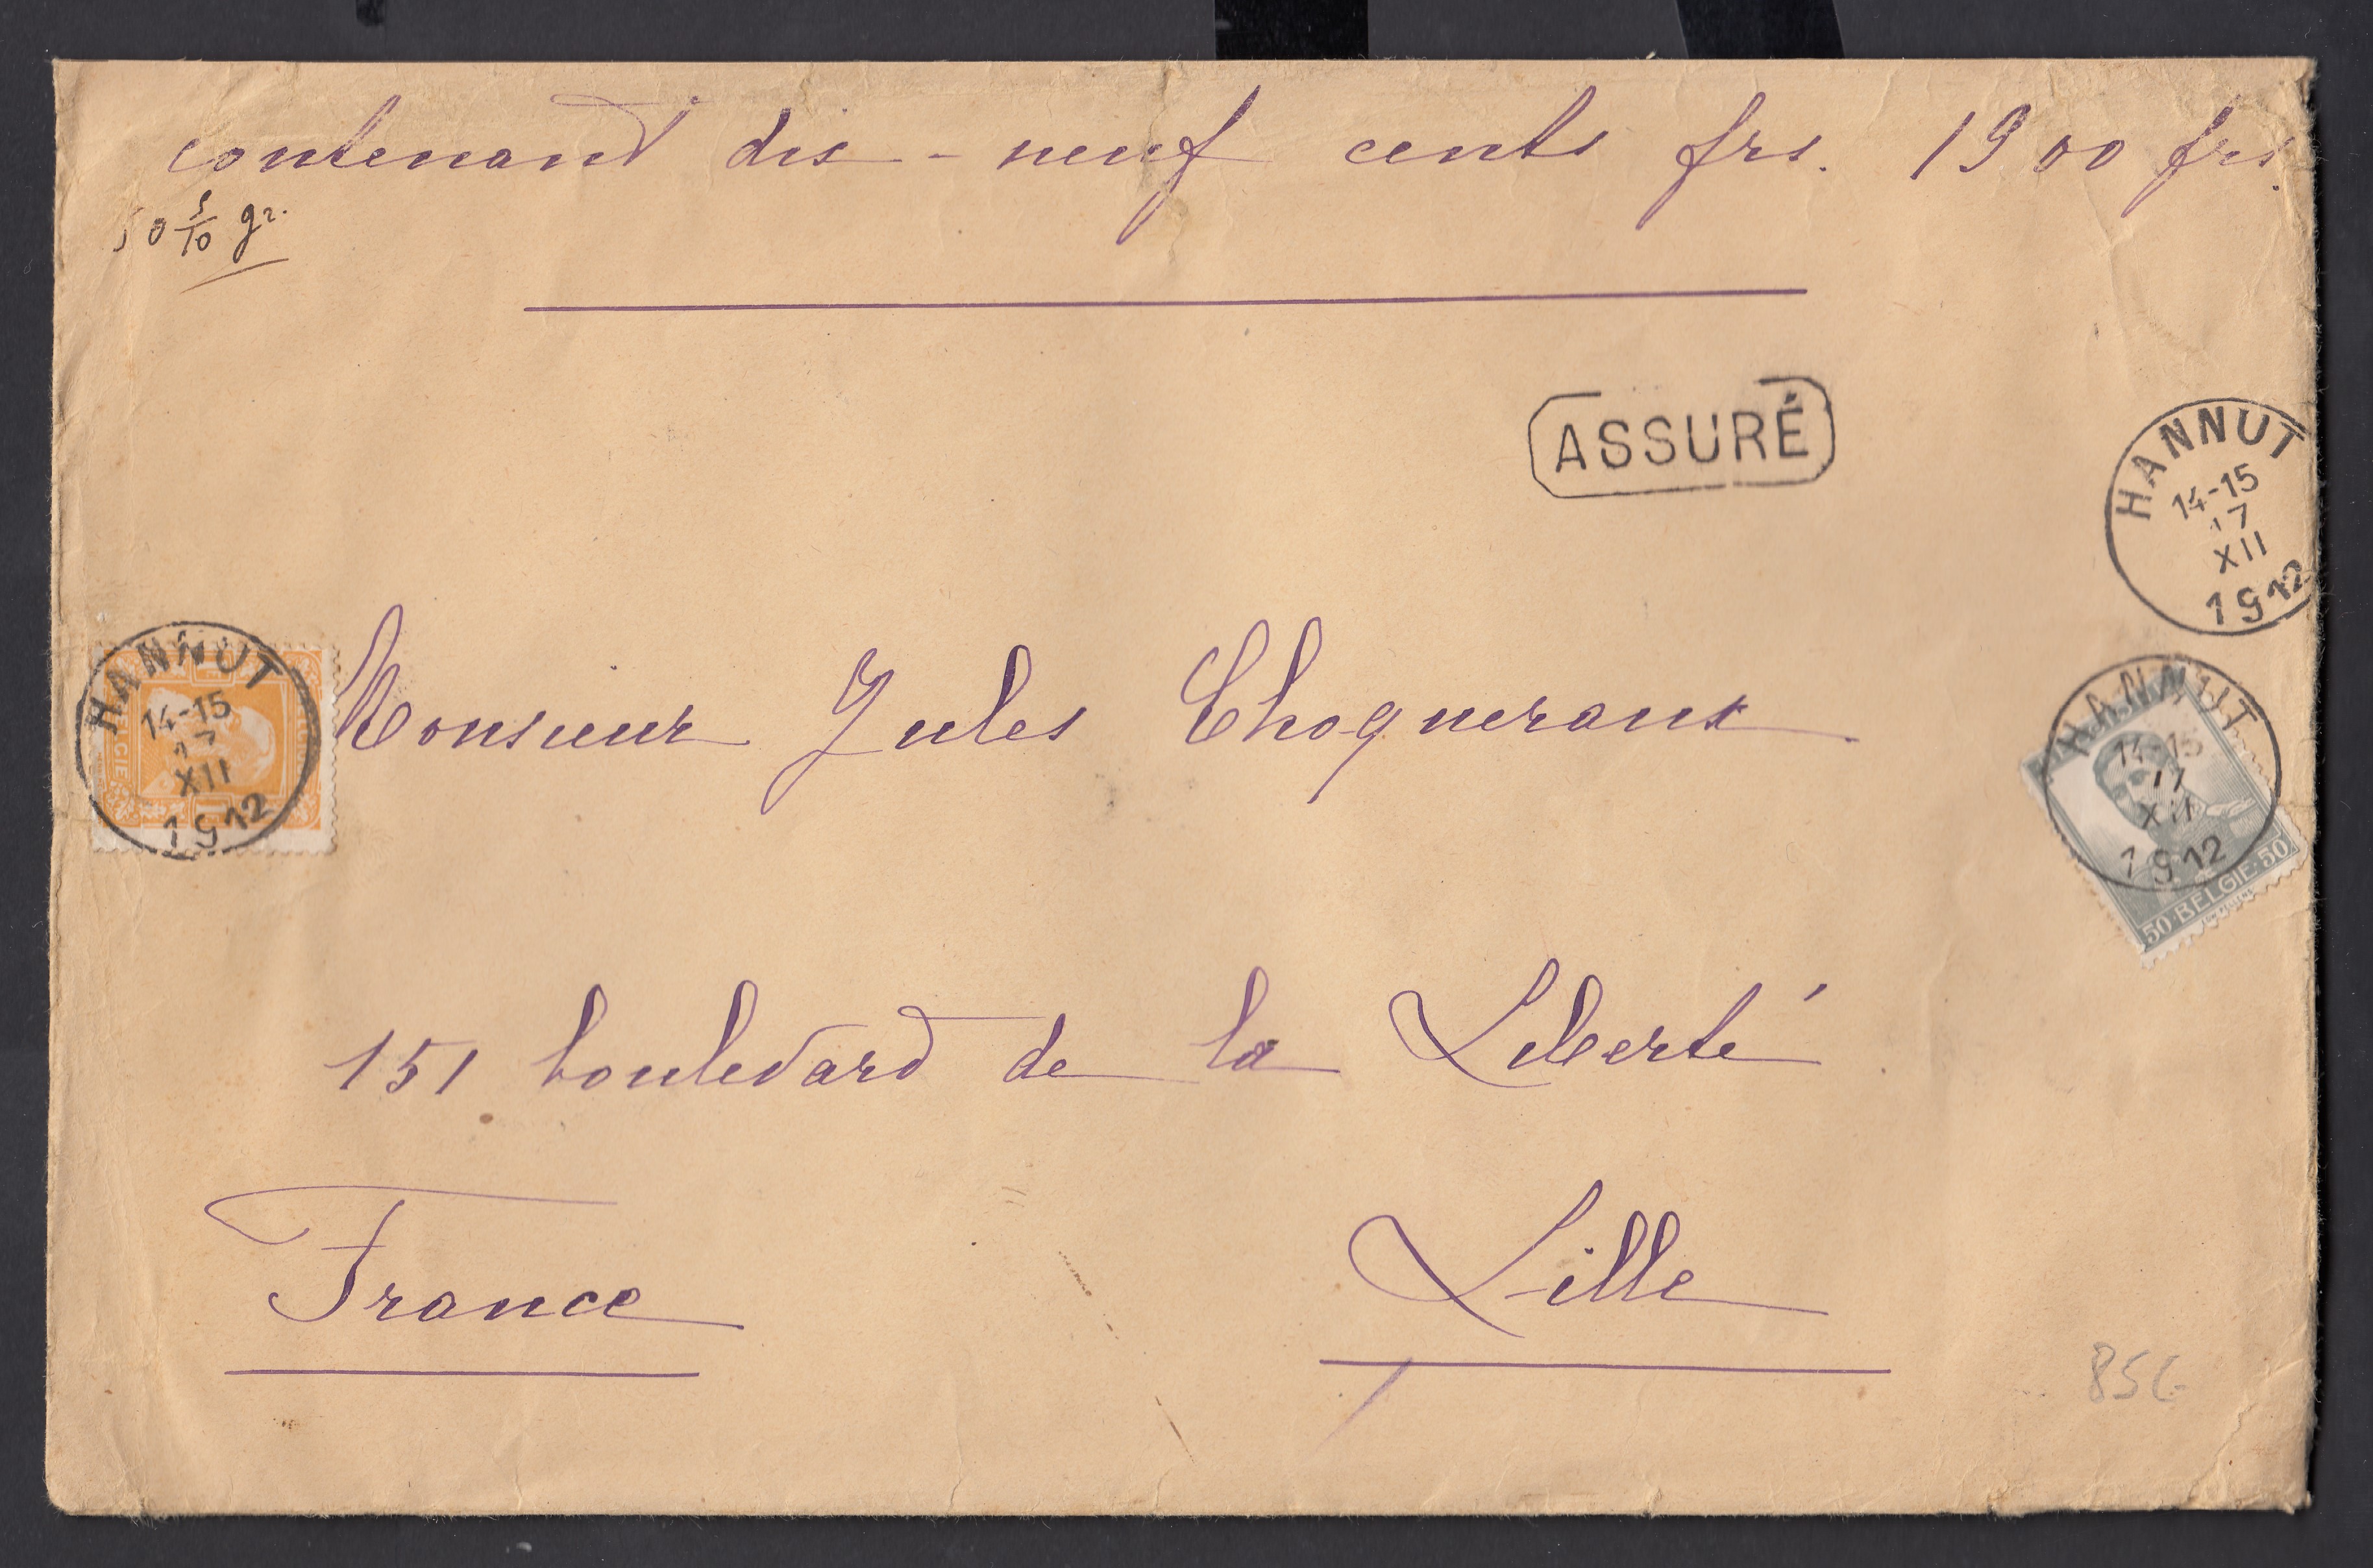 contenant dix-neuf cents frs. 1900 frs.
50 5/10 gr.
ASSURÉ
HANNUT
14-15
17
XII
1912
HANNUT
14-15
17
XII
1912
Monsieur Jules Choqueraux
HANNUT
14-15
17
XII
1912
50 BELGIE 50
151 boulevard de la Liberté
France Lille